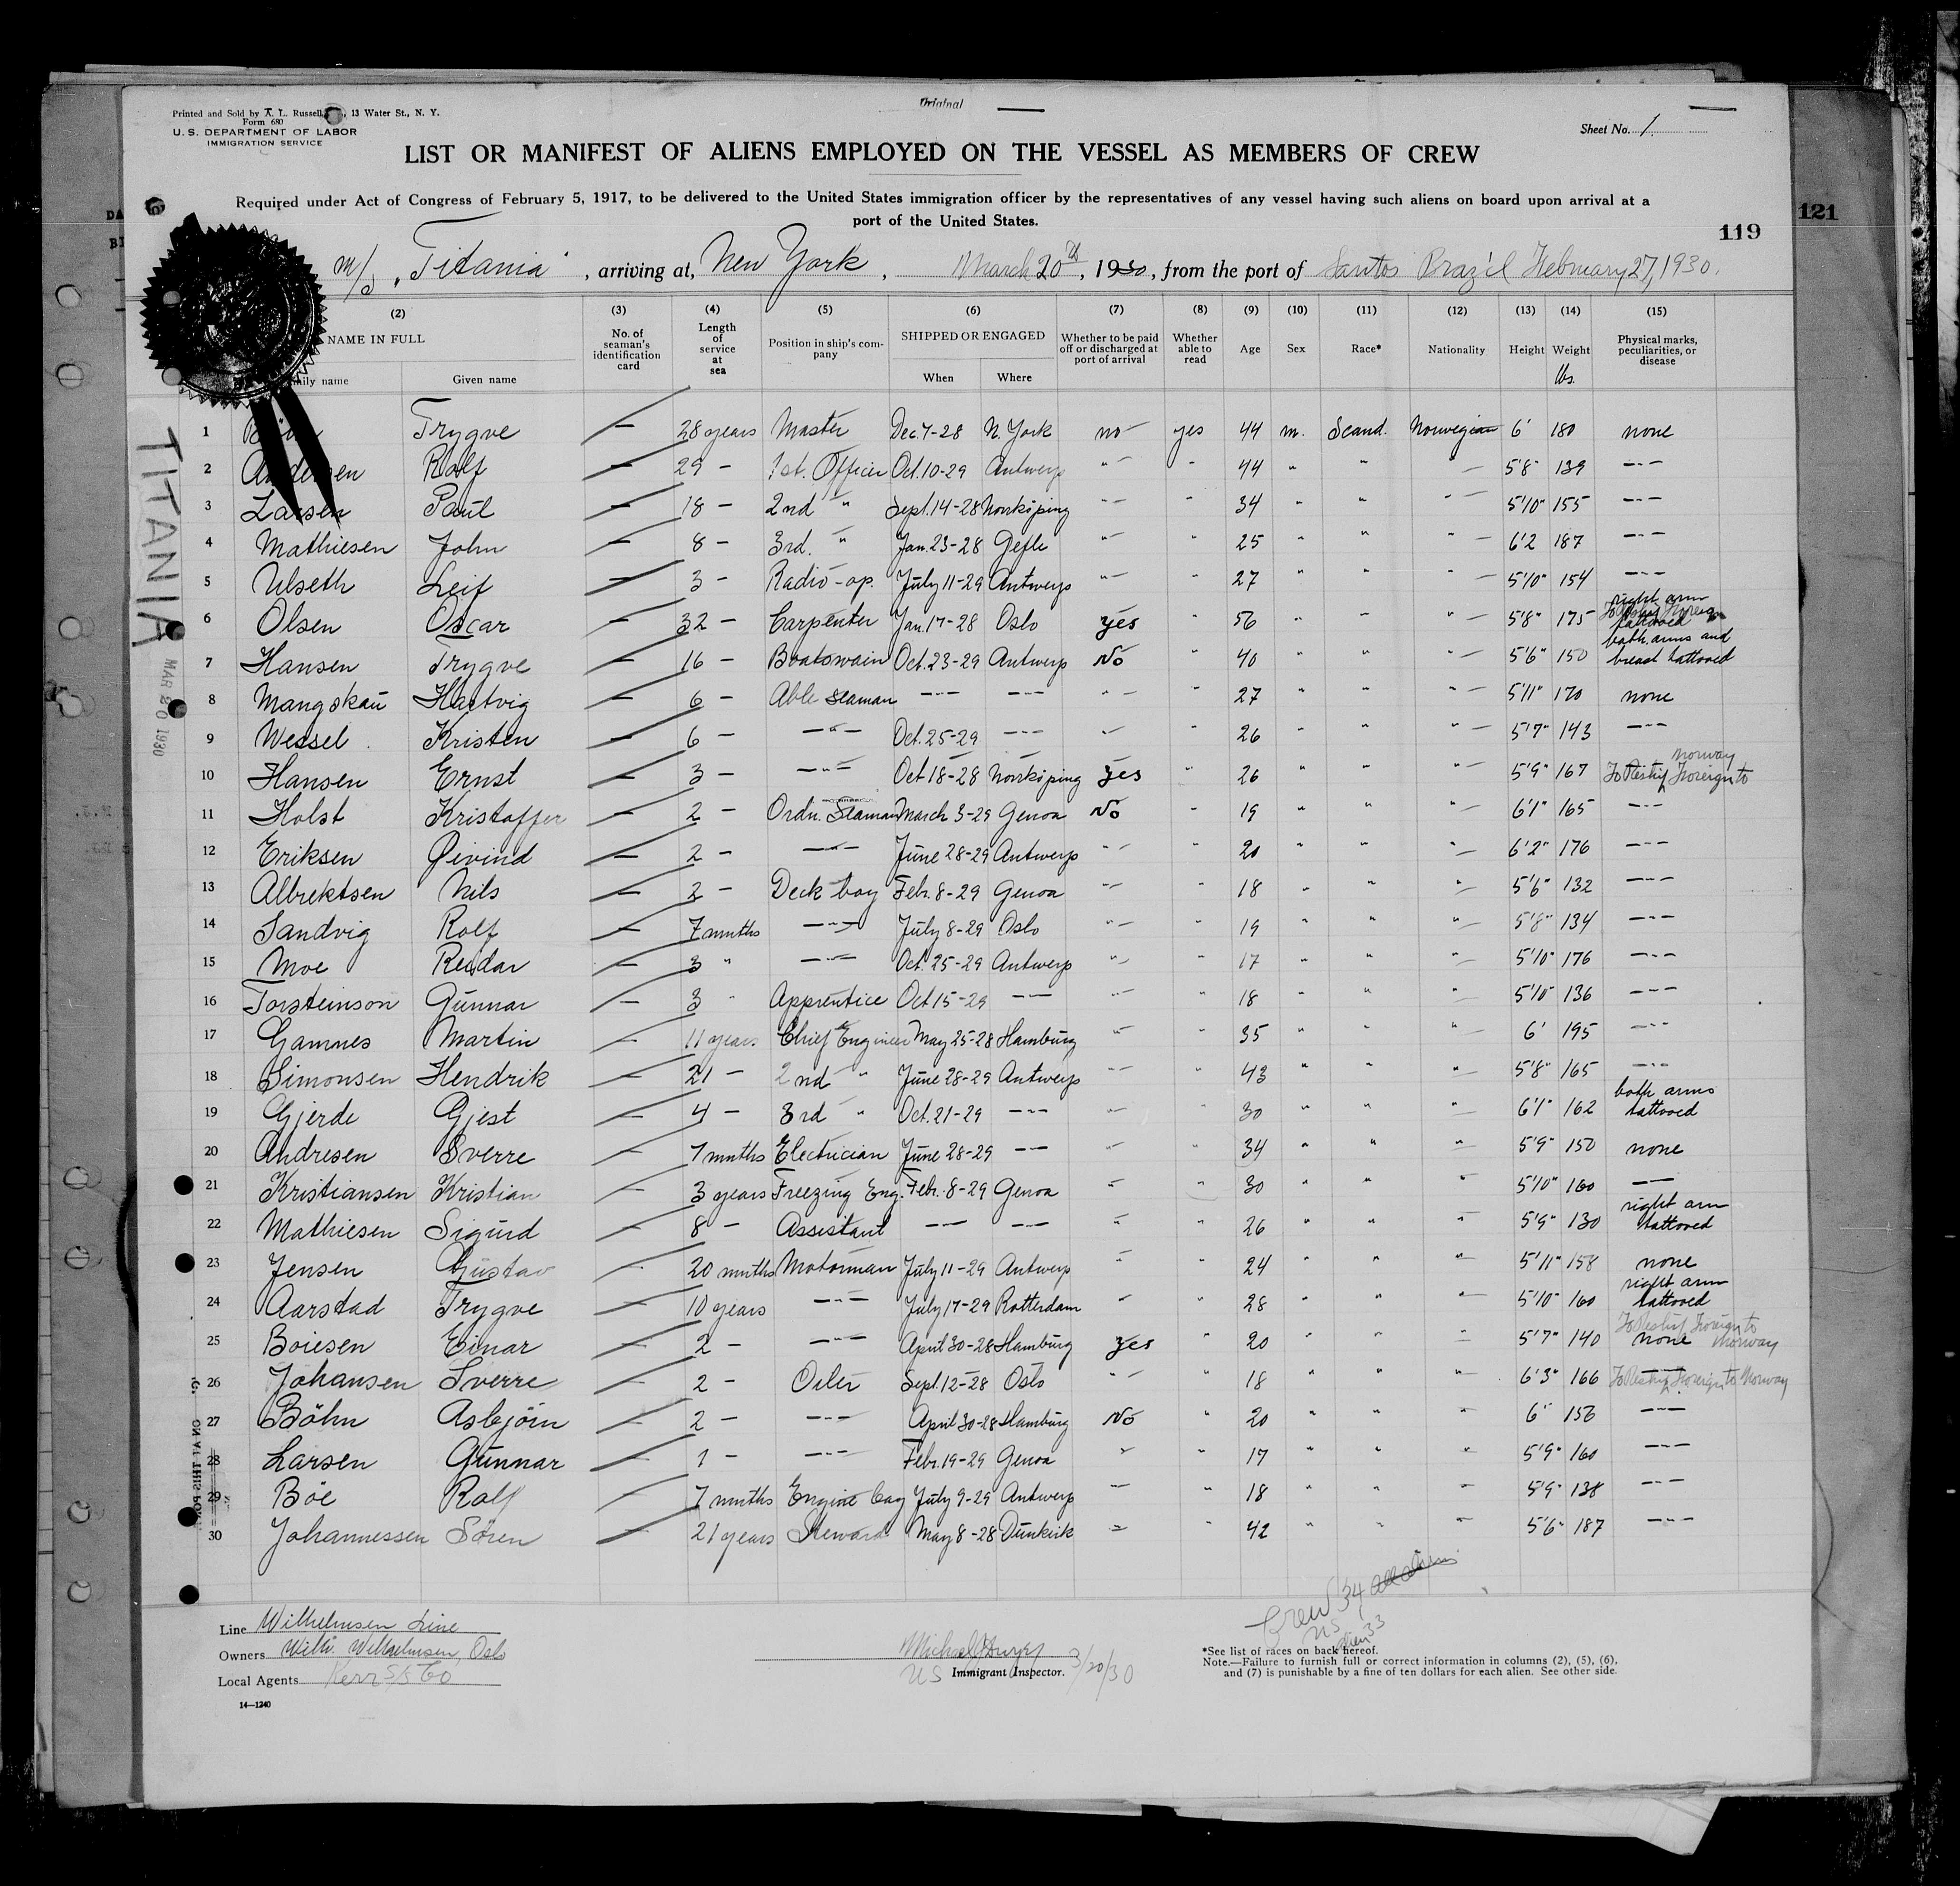 Original
Printed and Sold by A. L. Russell, 13 Water St., N. Y.
Form 680
U. S. DEPARTMENT OF LABOR
IMMIGRATION SERVICE
Sheet No. 1
LIST OR MANIFEST OF ALIENS EMPLOYED ON THE VESSEL AS MEMBERS OF CREW
Required under Act of Congress of February 5, 1917, to be delivered to the United States immigration officer by the representatives of any vessel having such aliens on board upon arrival at a
port of the United States.
121
119
M/S „Titania" , arriving at, New York , March 20th , 1930 , from the port of Santos Brazil February 27, 1930.
(2) (3) (4) (5) (6) (7) (8) (9) (10) (11) (12) (13) (14) (15)
NAME IN FULL No. of seaman's identification card Length of service at sea Position in ship's company SHIPPED OR ENGAGED Whether to be paid off or discharged at port of arrival Whether able to read Age Sex Race* Nationality Height Weight lbs. Physical marks, peculiarities, or disease
Given name When Where
1 Trygve — 28 years Master Dec. 7-28 N. York no yes 44 m. Scand. Norwegian 6' 180 none
2 Andersen Rolf — 29 — 1st. Officer Oct. 10-29 Antwerp " " 44 " " " 5'8" 139 —"—
3 Larsen Paul — 18 — 2nd " Sept. 14-28 Norrköping " " 34 " " " 5'10" 155 —"—
4 Mathiesen John — 8 — 3rd. " Jan. 23-28 Gefle " " 25 " " " 6'2 187 —"—
5 Ulseth Leif — 3 — Radio-op. July 11-29 Antwerp " " 27 " " " 5'10" 154 —"—
6 Olsen Oscar — 32 — Carpenter Jan. 17-28 Oslo yes " 56 " " " 5'8" 175 right arm tattooed
7 Hansen Trygve — 16 — Boatswain Oct. 23-29 Antwerp No " 40 " " " 5'6" 150 both arms and breast tattooed
8 Mangskau Hartvig — 6 — Able Seaman —"— —"— " " 27 " " " 5'11" 170 none
9 Wessel Kristen — 6 — —"— Oct. 25-29 —"— " " 26 " " " 5'7" 143 —"—
10 Hansen Ernst — 3 — —"— Oct 18-28 Norrköping yes " 26 " " " 5'9" 167 To Reship Foreign to Norway
11 Holst Kristoffer — 2 — Ordn. Seaman March 3-29 Genoa No " 19 " " " 6'1" 165 —"—
12 Eriksen Øivind — 2 — —"— June 28-29 Antwerp " " 20 " " " 6'2" 176 —"—
13 Albrektsen Nils — 2 — Deck boy Febr. 8-29 Genoa " " 18 " " " 5'6" 132 —"—
14 Sandvig Rolf — 7 mnths —"— July 8-29 Oslo " " 19 " " " 5'8" 134 —"—
15 Moe Reidar — 3 " —"— Oct. 25-29 Antwerp " " 17 " " " 5'10" 176 —"—
16 Torsteinson Gunnar — 3 " Apprentice Oct 15-29 —"— " " 18 " " " 5'10" 136 —"—
17 Gamnes Martin — 11 years Chief Engineer May 25-28 Hamburg " " 35 " " " 6' 195 —"—
18 Simonsen Hendrik — 21 — 2nd " June 28-29 Antwerp " " 43 " " " 5'8" 165 —"—
19 Gjerde Gjest — 4 — 3rd " Oct. 21-29 —"— " " 30 " " " 6'1" 162 both arms tattooed
20 Andresen Sverre — 7 mnths Electrician June 28-29 —"— " " 34 " " " 5'9" 150 none
21 Kristiansen Kristian — 3 years Freezing Eng. Febr. 8-29 Genoa " " 30 " " " 5'10" 160 —"—
22 Mathiesen Sigurd — 8 — Assistant —"— —"— " " 26 " " " 5'9" 130 right arm tattooed
23 Jensen Gustav — 20 mnths Motorman July 11-29 Antwerp " " 24 " " " 5'11" 158 none
24 Aarstad Trygve — 10 years —"— July 17-29 Rotterdam " " 28 " " " 5'10" 160 right arm tattooed
25 Boiesen Einar — 2 — —"— April 30-28 Hamburg yes " 20 " " " 5'7" 140 none To Reship Foreign to Norway
26 Johansen Sverre — 2 — Oiler Sept. 12-28 Oslo " " 18 " " " 6'3" 166 To Reship Foreign to Norway
27 Böhn Asbjörn — 2 — —"— April 30-28 Hamburg No " 20 " " " 6' 156 —"—
28 Larsen Gunnar — 1 — —"— Febr. 19-29 Genoa " " 17 " " " 5'9" 160 —"—
29 Böe Rolf — 7 mnths Engine boy July 9-29 Antwerp " " 18 " " " 5'9" 138 —"—
30 Johannessen Sören — 21 years Steward May 8-28 Dunkirk " " 42 " " " 5'6" 187 —"—
TITANIA
MAR 20 1930
Crew 34 all aliens
US 1
alien 33
Line Wilhelmsen Line
Owners Wilh. Wilhelmsen, Oslo
Local Agents Kerr S/S Co
14—1240
US Immigrant Inspector. 3/20/30
*See list of races on back hereof.
Note.—Failure to furnish full or correct information in columns (2), (5), (6),
and (7) is punishable by a fine of ten dollars for each alien. See other side.